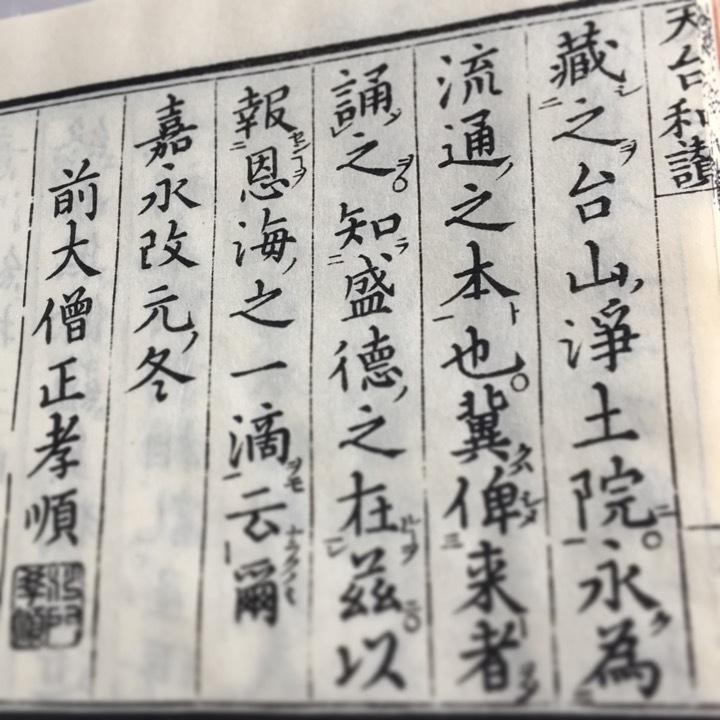 天台和讃
藏之台山淨土院。永為
流通之本也。冀俾来者
誦之。知盛德之在茲。以
報恩海之一滴云爾
嘉永改元冬
前大僧正孝順